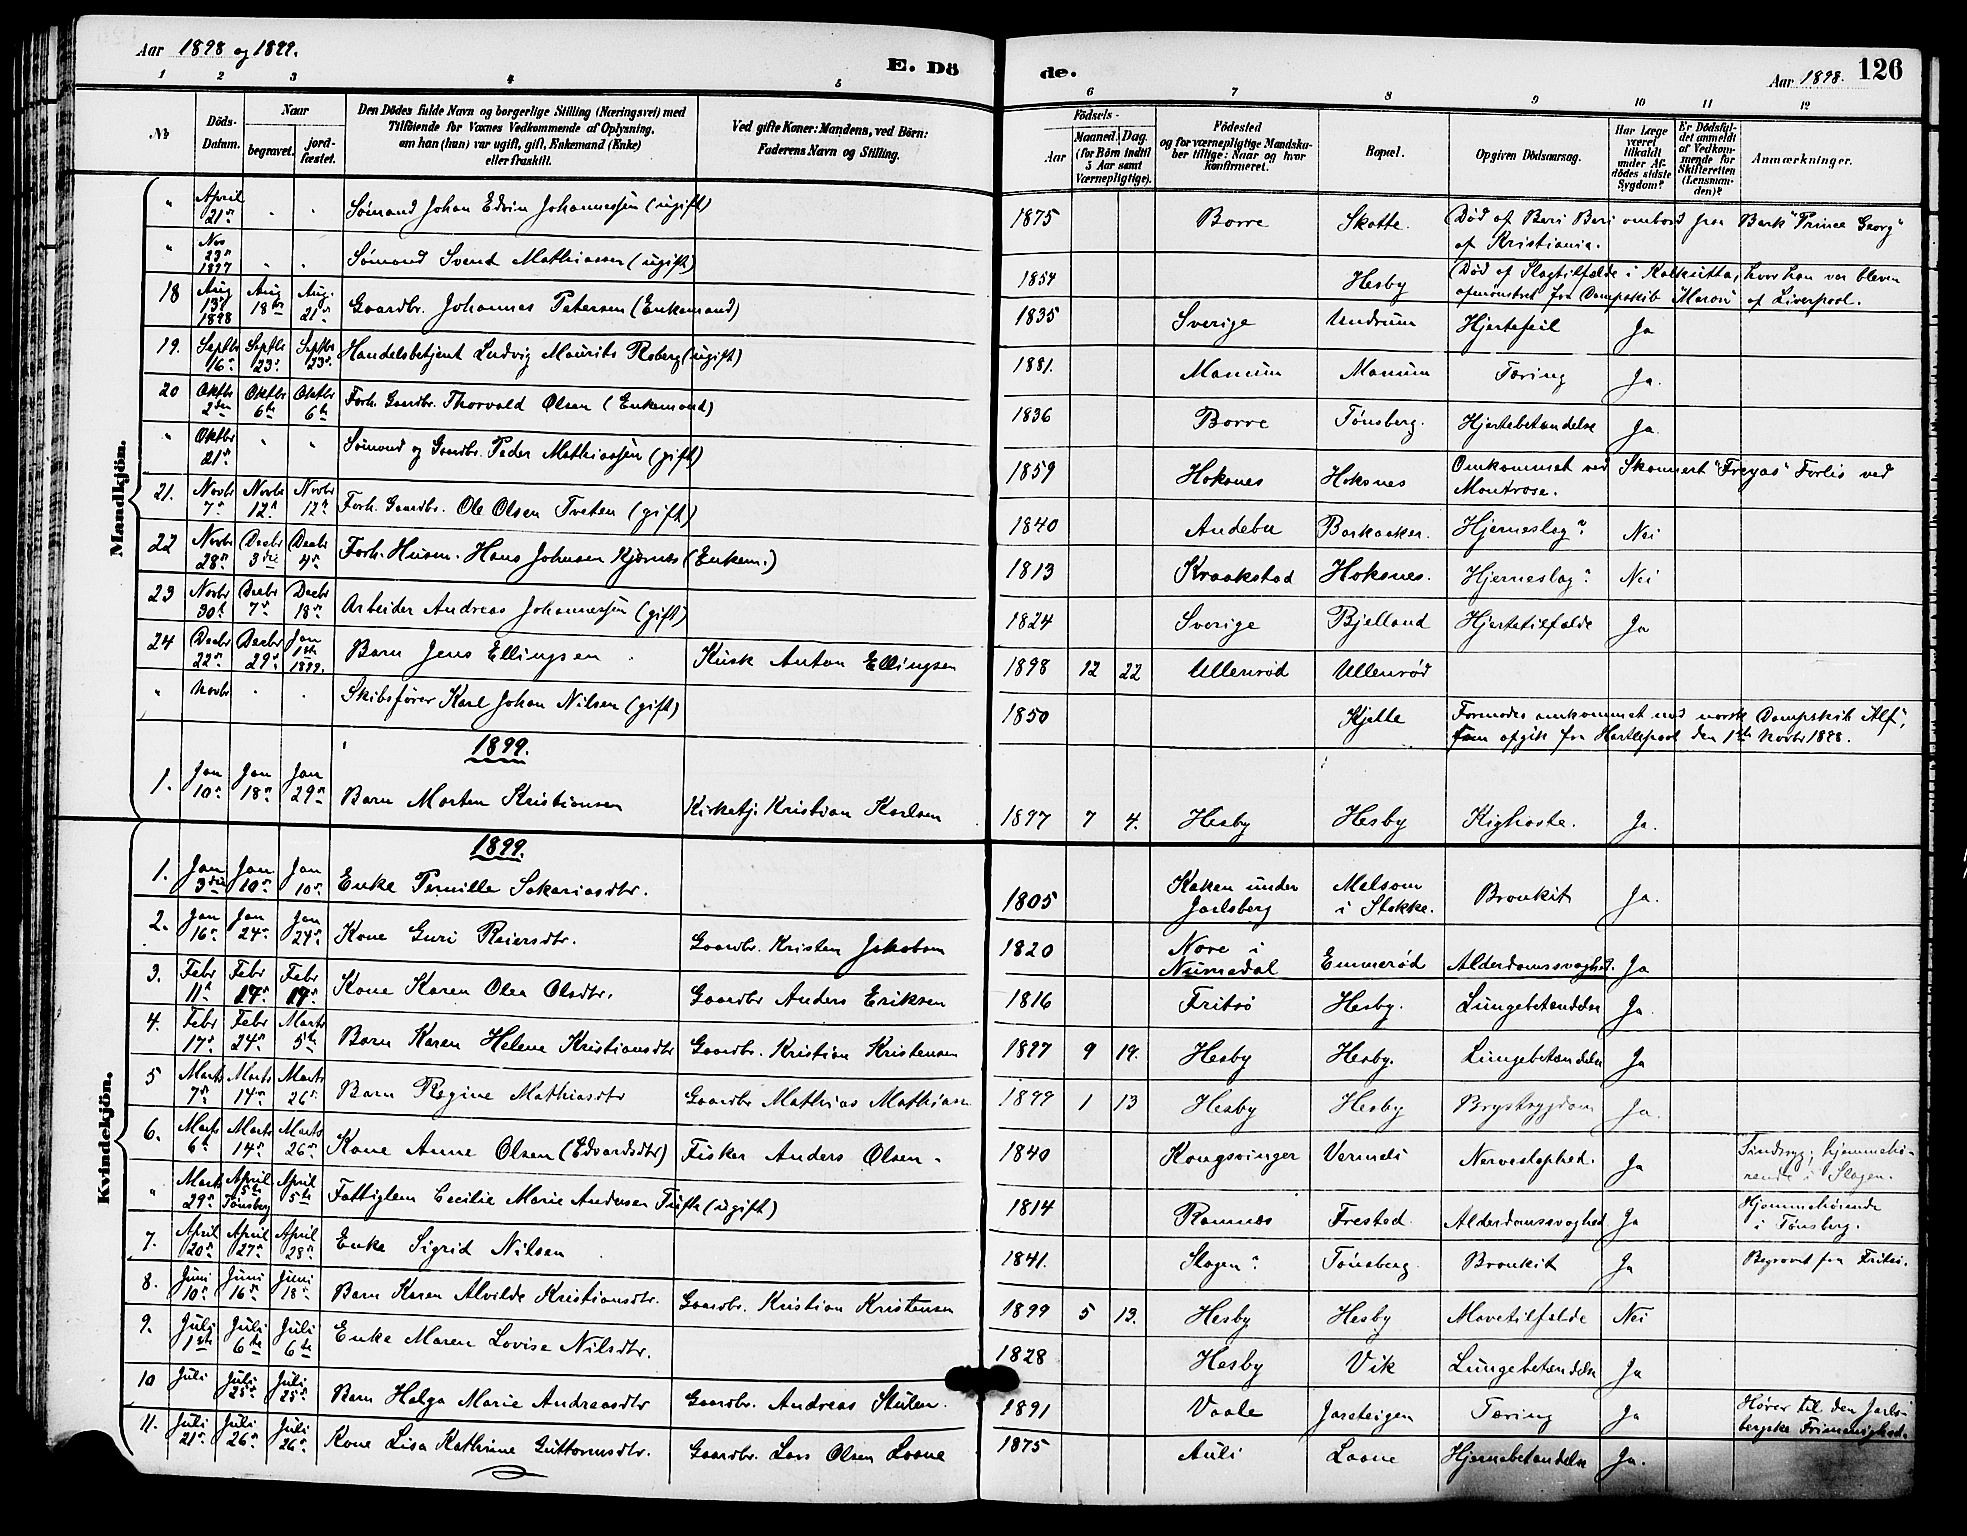 Aar 1898 og 1899.
E. Dö
de.
Aar 1898.
126
1 2 3 4 5 6 7 8 9 10 11 12
No
Döds-Datum.
Naar
begravet.
jord-fæstet.
Den Dödes fulde Navn og borgerlige Stilling (Næringsvei) med
Tilföiende for Voxnes Vedkommende af Oplysning,
om han (hun) var ugift, gift, Enkemand (Enke)
eller fraskilt.
Ved gifte Koner: Mandens, ved Börn:
Faderens Navn og Stilling.
Födsels-
Aar
Maaned. Dag.
(for Börn indtil
5 Aar samt
Værnepligtige).
Födested
og for værnepligtige Mandska-
ber tillige: Naar og hvor
konfirmeret.
Bopæl.
Opgiven Dödsaarsag.
Har Læge
været
tilkaldt
under Af-
dödes sidste
Sygdom?
Er Dödsfal-
det anmeldt
af Vedkom-
mende for
Skifteretten
(Lensman-
den)?
Anmærkninger.
Mandkjön.
" April 21de " " Sømand Johan Edvin Johannessen (ugift) 1875 Borre Skotte. Død af Beri Beri ombord paa Bark "Prince Georg" af Kristiania.
" Nov 29de 1897 " " Sømand Svend Mathiassen (ugift) 1854 Hesby Død af Slagtilfælde i Kalkutta, hvor han var bleven afmønstret fra Dampskib "Maroni" af Liverpool.
18 Aug 13de 1898 Aug 18de Aug. 21de Gaardbr. Johannes Petersen (Enkemand) 1835 Sverige Undrum Hjertefeil Ja
19. Septbr 16de Septbr 23de Septbr 23de Handelsbetjent Ludvig Maurits Roberg (ugift) 1881. Manum Manum Tæring Ja.
20 Oktbr 2den Oktbr 6te Oktbr 6te Forh. Gaardbr. Thorvald Olsen (Enkemand) 1836 Borre Tønsberg. Hjertebetændelse Ja.
" Oktbr 21de " " Sømand og Gaardbr. Peder Mathiassen (gift) 1859 Hoksnes Hoksnes Omkommet ved Skonnert "Freyas" Forlis ved Montrose.
21. Novbr 7de Novbr 12te Novbr 12te Forh. Gaardbr. Ole Olsen Tveten (gift) 1840 Andebu Barkaaker. Hjerneslag? Nei
22 Novbr 28de Decbr 3die Decbr 4de Forh. Husm. Hans Johnsen Kjærnæs (Enkem.) 1813 Kraakstad Hoksnes. Hjerneslag? Nei
23 Novbr 30te Decbr 7de Decbr 18de Arbeider Andreas Johannessen (gift) 1824 Sverige Bjelland Hjertetilfælde Ja
24 Decbr 22de Decbr 29de Jan 1ste 1899. Barn Jens Ellingsen Kusk Anton Ellingsen 1898 12 22 Ullenrød Ullenrød
" Novbr " " Skibsfører Karl Johan Nilsen (gift) 1850 Kjelle Formodes omkommet med norsk Dampskib "Alf", som afgik fra Hartlepool den 1ste Novbr 1898.
1899.
1. Jan 10de Jan 18de Jan 29de Barn Morten Kristiansen Kirketj. Kristian Karlsen 1897 7 4. Hesby Hesby Kighoste. Ja.
Kvindekjön.
1899.
1. Jan 3die Jan 10de Jan 10de Enke Pernille Sakariasdtr. 1805 Kaken under Jarlsberg Melsom i Stokke. Bronkit Ja.
2. Jan 16de Jan 24de Jan 24de Kone Guri Reiersdtr. Gaardbr. Kristen Jakobsen 1820 Nore i Numedal Emmerød Alderdomssvaghed. Ja
3. Febr 11te Febr 19de Febr 19de Kone Karen Olea Olsdtr. Gaardbr Anders Eriksen 1816 Fritsø Hesby. Lungebetændelse Ja.
4. Febr 17de Febr 24de Marts 5te Barn Karen Helene Kristiansdtr Gaardbr. Kristian Kristensen 1897 9 19. Hesby Hesby. Lungebetændelse Ja
5 Marts 7de Marts 14de Marts 26de Barn Regine Mathiasdtr Gaardbr Mathias Mathiasen 1899 1 13 Hesby Hesby Brystsygdom Ja.
6. Marts 6te Marts 14de Marts 26de Kone Anne Olsen (Edvardsdtr) Fisker Anders Olsen. 1840 Kongsvinger Vermeli Nerveslaphed. Ja Sindssyg; hjemmehørende i Slagen.
" Marts 29de April 5te Tønsberg April 5te Fattiglem Cecilie Marie Andersen Tufte (ugift) 1814 Ramnæs Frestad. Alderdomssvaghed Ja Hjemmehørende i Tønsberg.
7. April 20de April 27de April 28de Enke Sigrid Nilsen 1841. Slagen? Tønsberg Bronkit Ja Begravet fra Fritsø.
8. Juni 10de Juni 16de Juni 18de Barn Karen Alvilde Kristiansdtr. Gaardbr. Kristian Kristensen 1899 5 13. Hesby Hesby Mavetilfælde Nei
9. Juli 1ste Juli 6te Juli 6te Enke Maren Lovise Nilsdtr. 1828 Hesby Vik Lungebetændelse Ja
10 Juli Juli 25de Juli 25de Barn Helga Marie Andreasdtr Gaardbr. Andreas Stulen. 1891 Vaale Jareteigen Tæring Ja Hører til den Jarlsbergske Frimenighed.
11. Juli 21de Juli 26de Juli 26de Kone Lisa Kathrine Guttormsdtr. Gaardbr. Lars Olsen Laane 1875 Auli Laane Hjernebetændelse Ja.